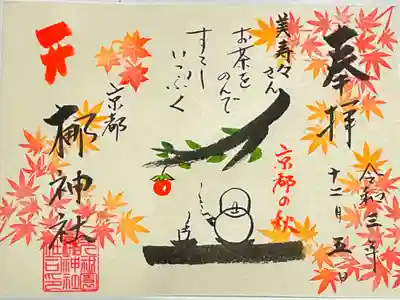 奉拝
令和三年
十二月五日
京都の秋
美寿々さん
お茶を
のんで
すこし
いっぷく
京都
梛神社